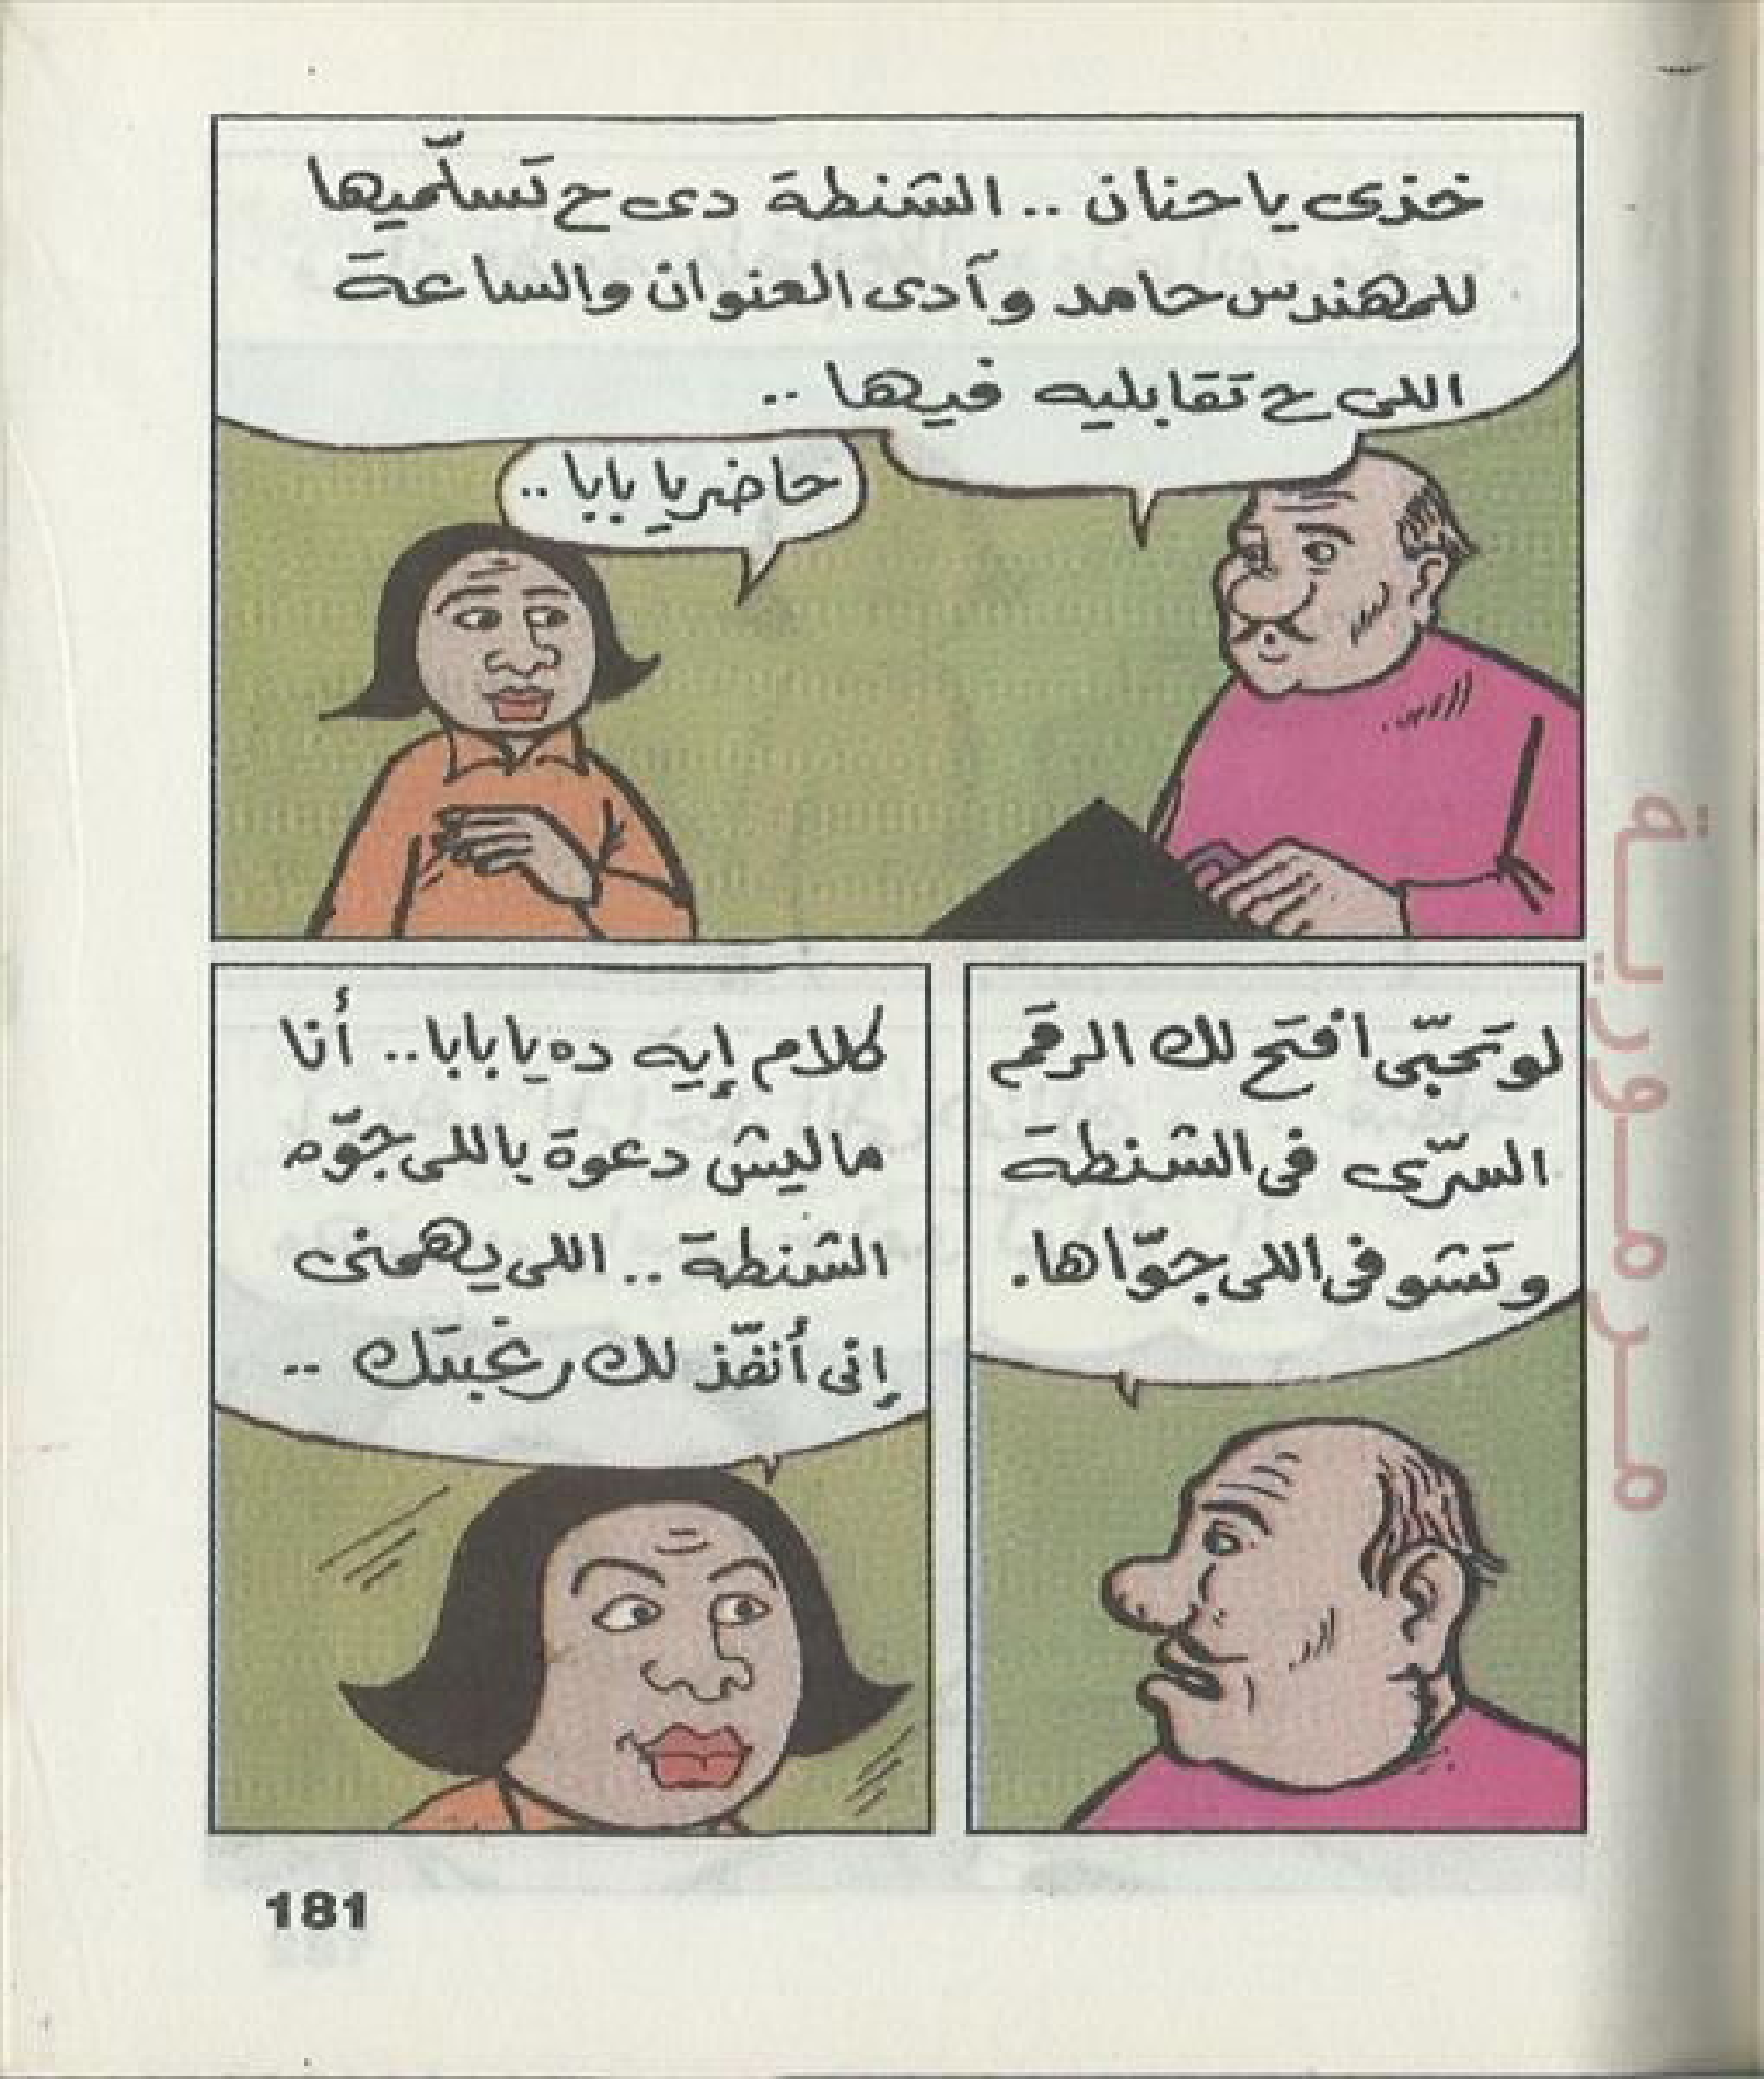 خذى يا حنان .. الشنطة دى ح تَسلّميها
للمهندس حامد وآدى العنوان والساعة
اللى ح تقابليه فيها ..
حاضر يا بابا ..
لو تحبّى افتح لك الرقم
السرّى فى الشنطة
وتشوفى اللى جوّاها.
كلام إيه ده يا بابا .. أنا
ماليش دعوة باللى جوّه
الشنطة .. اللى يهمنى
إنى أنفّذ لك رغبتك ..
181
مرمورية